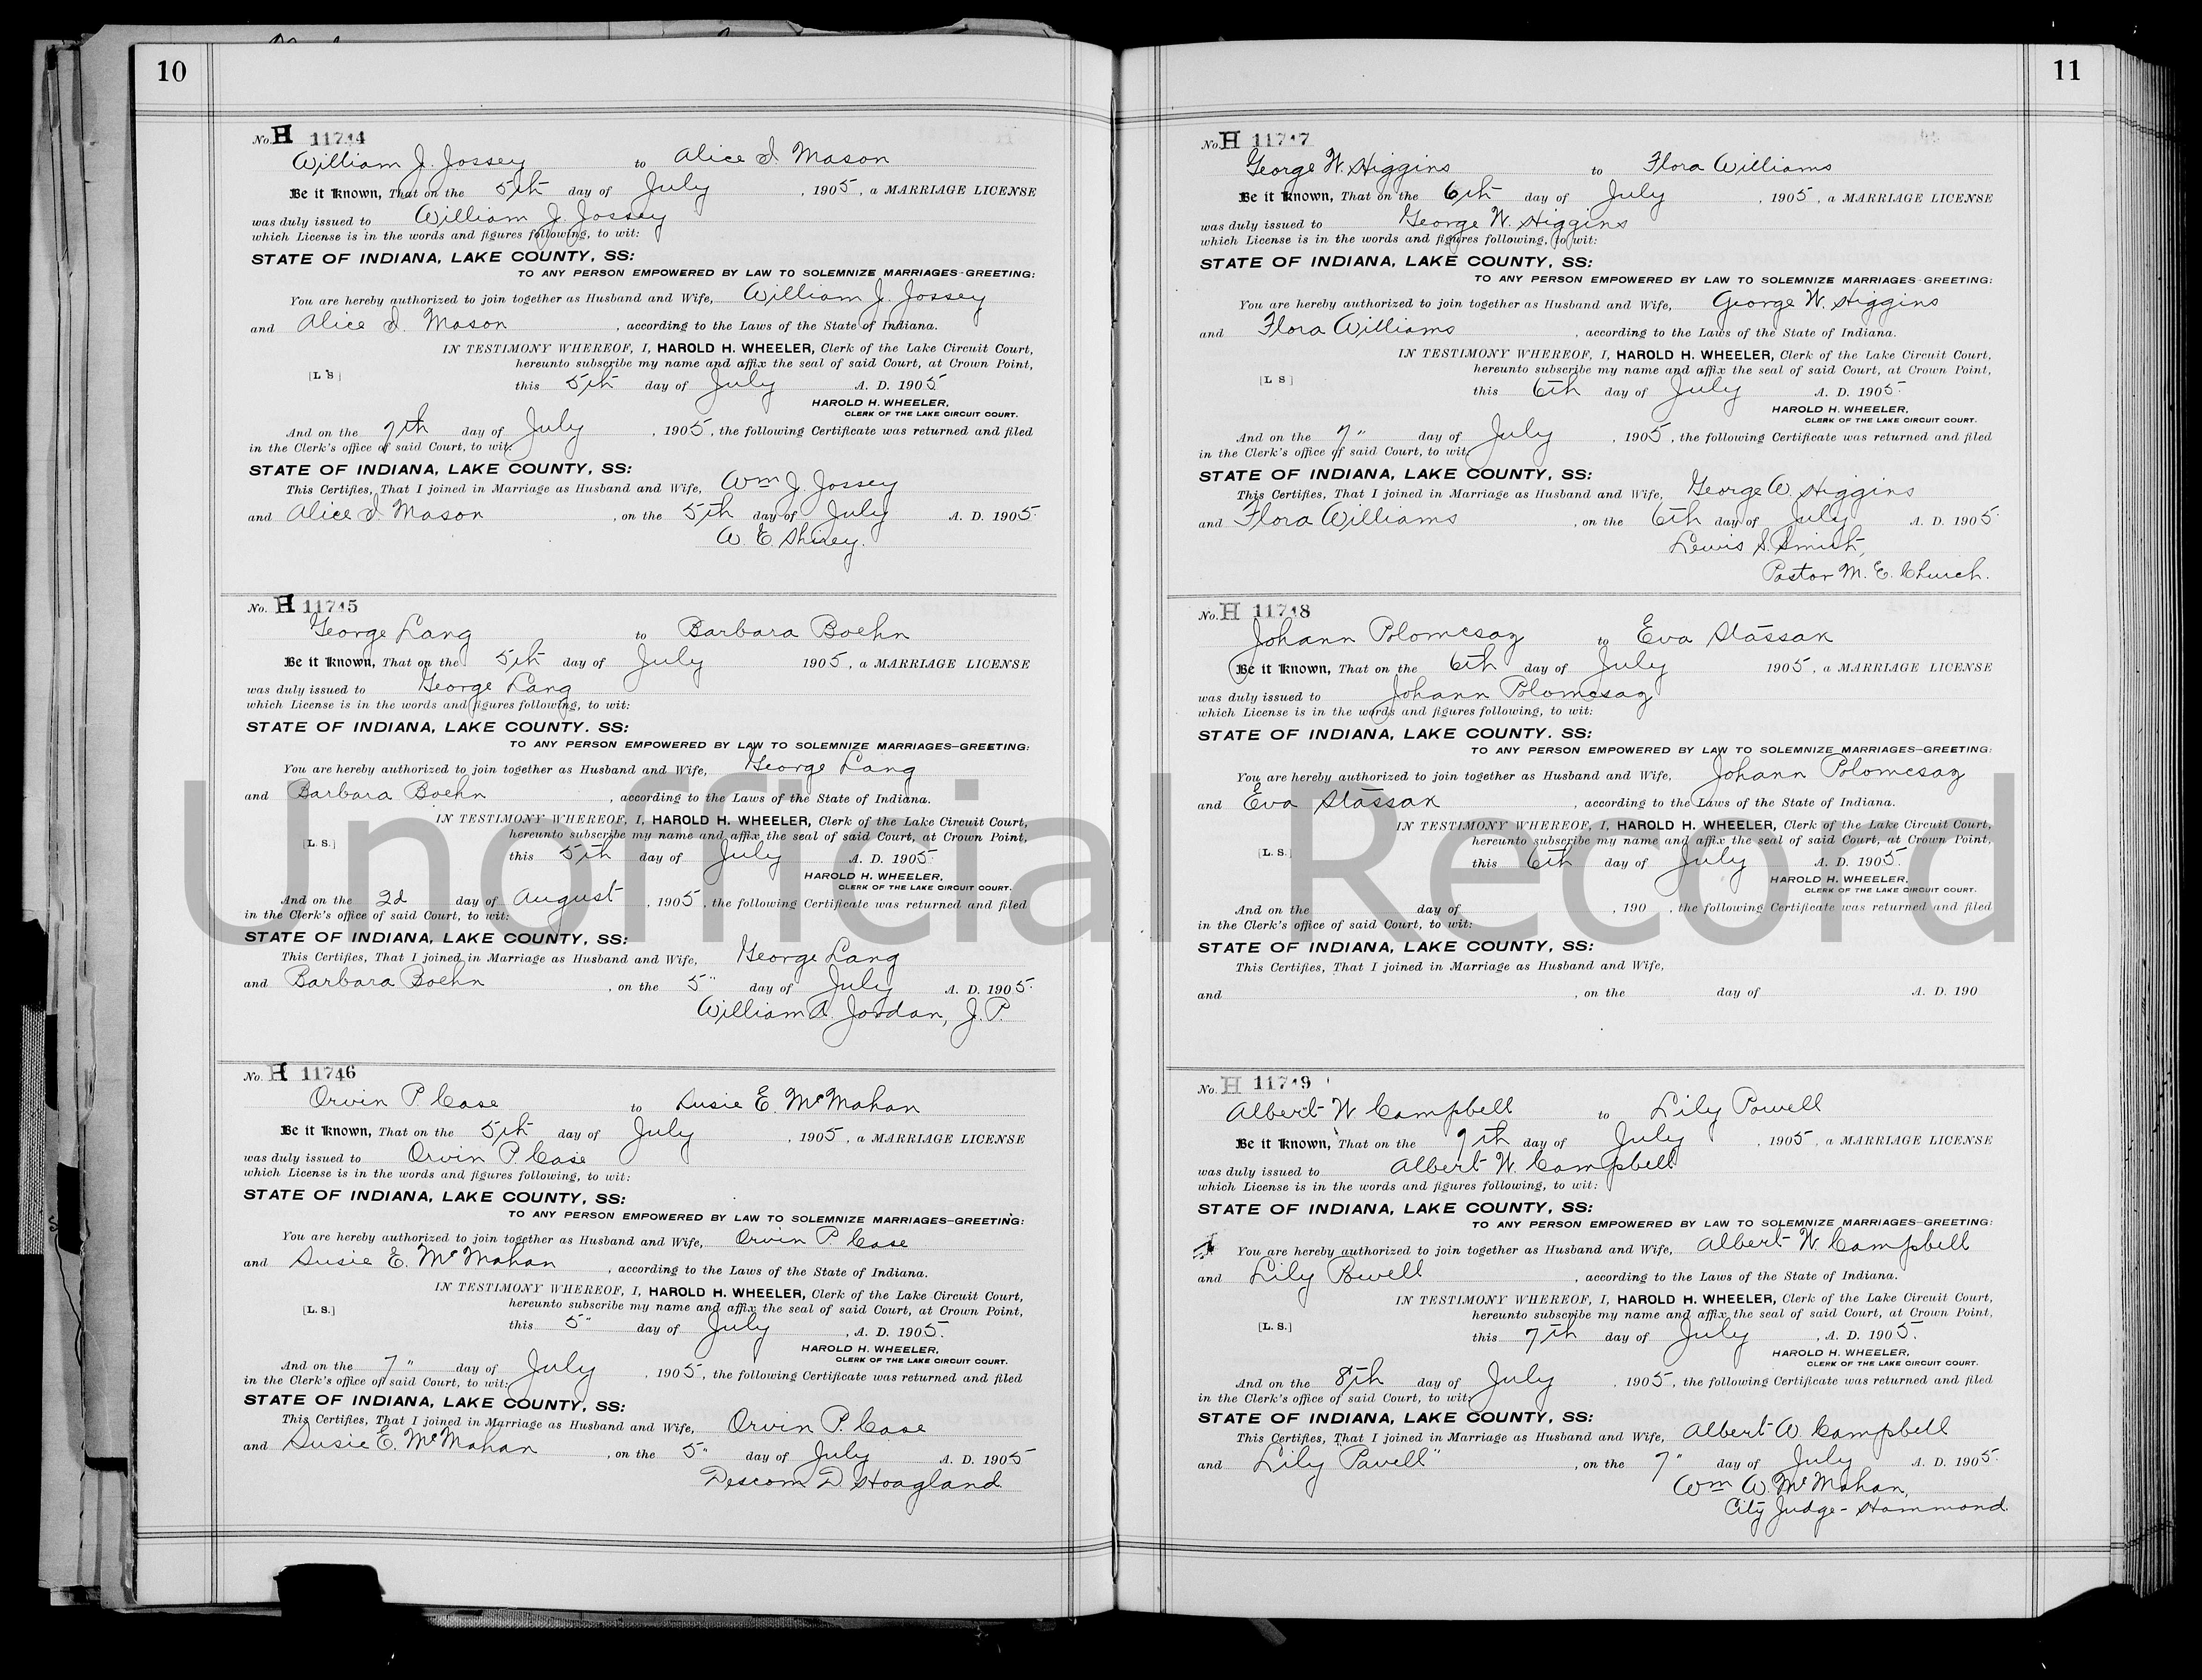 10
No. H 11744
William J. Jossey to Alice I. Mason
Be it Known, That on the 5th day of July, 1905, a MARRIAGE LICENSE
was duly issued to William J. Jossey
which License is in the words and figures following, to wit:
STATE OF INDIANA, LAKE COUNTY, SS:
TO ANY PERSON EMPOWERED BY LAW TO SOLEMNIZE MARRIAGES-GREETING:
You are hereby authorized to join together as Husband and Wife, William J. Jossey
and Alice I. Mason, according to the Laws of the State of Indiana.
IN TESTIMONY WHEREOF, I, HAROLD H. WHEELER, Clerk of the Lake Circuit Court,
hereunto subscribe my name and affix the seal of said Court, at Crown Point,
[L S] this 5th day of July A. D. 1905
HAROLD H. WHEELER,
CLERK OF THE LAKE CIRCUIT COURT.
And on the 7th day of July, 1905, the following Certificate was returned and filed
in the Clerk's office of said Court, to wit:
STATE OF INDIANA, LAKE COUNTY, SS:
This Certifies, That I joined in Marriage as Husband and Wife, Wm J. Jossey
and Alice I. Mason, on the 5th day of July A. D. 1905.
W. E. Shirey.
No. H 11745
George Lang to Barbara Boehn
Be it Known, That on the 5th day of July 1905, a MARRIAGE LICENSE
was duly issued to George Lang
which License is in the words and figures following, to wit:
STATE OF INDIANA, LAKE COUNTY. SS:
TO ANY PERSON EMPOWERED BY LAW TO SOLEMNIZE MARRIAGES-GREETING:
You are hereby authorized to join together as Husband and Wife, George Lang
and Barbara Boehn, according to the Laws of the State of Indiana.
IN TESTIMONY WHEREOF, I, HAROLD H. WHEELER, Clerk of the Lake Circuit Court,
hereunto subscribe my name and affix the seal of said Court, at Crown Point,
[L. S.] this 5th day of July A. D. 1905.
HAROLD H. WHEELER,
CLERK OF THE LAKE CIRCUIT COURT.
And on the 2d day of August, 1905, the following Certificate was returned and filed
in the Clerk's office of said Court, to wit:
STATE OF INDIANA, LAKE COUNTY, SS:
This Certifies, That I joined in Marriage as Husband and Wife, George Lang
and Barbara Boehn, on the 5" day of July A. D. 1905.
William A. Jordan, J. P.
No. H 11746
Orvin P. Case to Susie E. McMahan
Be it Known, That on the 5th day of July, 1905, a MARRIAGE LICENSE
was duly issued to Orvin P. Case
which License is in the words and figures following, to wit:
STATE OF INDIANA, LAKE COUNTY, SS:
TO ANY PERSON EMPOWERED BY LAW TO SOLEMNIZE MARRIAGES-GREETING:
You are hereby authorized to join together as Husband and Wife, Orvin P. Case
and Susie E. McMahan, according to the Laws of the State of Indiana.
IN TESTIMONY WHEREOF, I, HAROLD H. WHEELER, Clerk of the Lake Circuit Court,
hereunto subscribe my name and affix the seal of said Court, at Crown Point,
[L. S.] this 5" day of July, A. D. 1905.
HAROLD H. WHEELER,
CLERK OF THE LAKE CIRCUIT COURT.
And on the 7" day of July, 1905, the following Certificate was returned and filed
in the Clerk's office of said Court, to wit:
STATE OF INDIANA, LAKE COUNTY, SS:
This Certifies, That I joined in Marriage as Husband and Wife, Orvin P. Case
and Susie E. McMahan, on the 5" day of July A. D. 1905
Descom D. Hoagland
11
No. H 11747
George W. Higgins to Flora Williams
Be it Known, That on the 6th day of July, 1905, a MARRIAGE LICENSE
was duly issued to George W. Higgins
which License is in the words and figures following, to wit:
STATE OF INDIANA, LAKE COUNTY, SS:
TO ANY PERSON EMPOWERED BY LAW TO SOLEMNIZE MARRIAGES-GREETING:
You are hereby authorized to join together as Husband and Wife, George W. Higgins
and Flora Williams, according to the Laws of the State of Indiana.
IN TESTIMONY WHEREOF, I, HAROLD H. WHEELER, Clerk of the Lake Circuit Court,
hereunto subscribe my name and affix the seal of said Court, at Crown Point,
[L S] this 6th day of July A. D. 1905.
HAROLD H. WHEELER,
CLERK OF THE LAKE CIRCUIT COURT.
And on the 7" day of July, 1905, the following Certificate was returned and filed
in the Clerk's office of said Court, to wit:
STATE OF INDIANA, LAKE COUNTY, SS:
This Certifies, That I joined in Marriage as Husband and Wife, George W. Higgins
and Flora Williams, on the 6th day of July A. D. 1905.
Lewis S. Smith,
Pastor M. E. Church.
No. H 11748
Johann Polomcsag to Eva Stássak
Be it Known, That on the 6th day of July 1905, a MARRIAGE LICENSE
was duly issued to Johann Polomcsag
which License is in the words and figures following, to wit:
STATE OF INDIANA, LAKE COUNTY. SS:
TO ANY PERSON EMPOWERED BY LAW TO SOLEMNIZE MARRIAGES-GREETING:
You are hereby authorized to join together as Husband and Wife, Johann Polomcsag
and Eva Stássak, according to the Laws of the State of Indiana.
IN TESTIMONY WHEREOF, I, HAROLD H. WHEELER, Clerk of the Lake Circuit Court,
hereunto subscribe my name and affix the seal of said Court, at Crown Point,
[L. S.] this 6th day of July A. D. 1905.
HAROLD H. WHEELER,
CLERK OF THE LAKE CIRCUIT COURT.
And on the day of, 190, the following Certificate was returned and filed
in the Clerk's office of said Court, to wit:
STATE OF INDIANA, LAKE COUNTY, SS:
This Certifies, That I joined in Marriage as Husband and Wife,
and, on the day of A. D. 190
No. H 11749
Albert W Campbell to Lily Powell
Be it Known, That on the 7th day of July, 1905, a MARRIAGE LICENSE
was duly issued to Albert W. Campbell
which License is in the words and figures following, to wit:
STATE OF INDIANA, LAKE COUNTY, SS:
TO ANY PERSON EMPOWERED BY LAW TO SOLEMNIZE MARRIAGES-GREETING:
You are hereby authorized to join together as Husband and Wife, Albert W. Campbell
and Lily Powell, according to the Laws of the State of Indiana.
IN TESTIMONY WHEREOF, I, HAROLD H. WHEELER, Clerk of the Lake Circuit Court,
hereunto subscribe my name and affix the seal of said Court, at Crown Point,
[L. S.] this 7th day of July, A. D. 1905.
HAROLD H. WHEELER,
CLERK OF THE LAKE CIRCUIT COURT.
And on the 8th day of July, 1905, the following Certificate was returned and filed
in the Clerk's office of said Court, to wit:
STATE OF INDIANA, LAKE COUNTY, SS:
This Certifies, That I joined in Marriage as Husband and Wife, Albert W. Campbell
and Lily "Pavell", on the 7" day of July A. D. 1905.
Wm W. McMahan,
City Judge - Hammond.
Unofficial Record